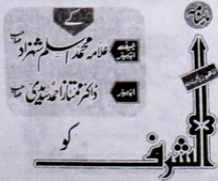 ماہنامہ
کے
چیف ایڈیٹر
علامہ محمد اسلم شہزاد
ایڈیٹر
ڈاکٹر ممتاز احمد سدیدی
الشرف
کو